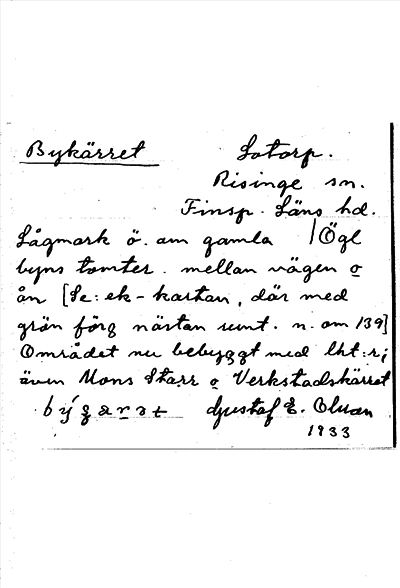 Bykärret Lotorp.
Risinge sn.
Finsp. Läns hd.
Lågmark ö. om gamla /Ögl
byns tomter. mellan vägen o
ån [Se: ek-kartan, där med
grön färg nästan runt. n. om 139]
Området nu bebyggt med lht:r;
även Mons Starr o Verkstadskärret
Gustaf E. Olsson
1933